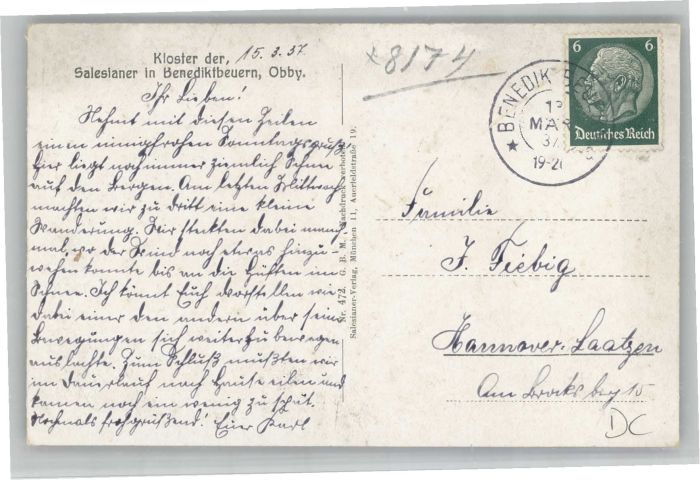 Kloster der, 15.3.37
Salesianer in Benediktbeuern, Obby.
Ihr Lieben!
Nehmt mit diesen Zeilen
einen Sonntagsgruß.
Hier liegt noch immer ziemlich Schnee
auf den Bergen. Am letzten Mittwoch
machten wir zu dritt eine kleine
Wanderung. Wir steckten dabei manch
mal, wo der Wind noch etwas hinzu-
wehen konnte bis an die Hüften im
Schnee. Ich könnt Euch vorstellen wie
dabei einer den andern über seine
Bewegungen sich weiter zu bewegen
auslachte. Zum Schluß mußten wir
im Dauerlauf nach Hause eilen und
kamen noch ein wenig zu spät.
Nochmals frohgrüßend! Euer Karl
Nr. 472. G. B. M., Nachdruck verboten
Salesianer-Verlag, München 11, Auerfeldstraße 19.
x8174
6 6
Deutsches Reich
BENEDIKTBEUERN
MÄRZ
37
19-20
Familie
J. Fiebig
Hannover-Laatzen
Am Brocksberg 15
DC